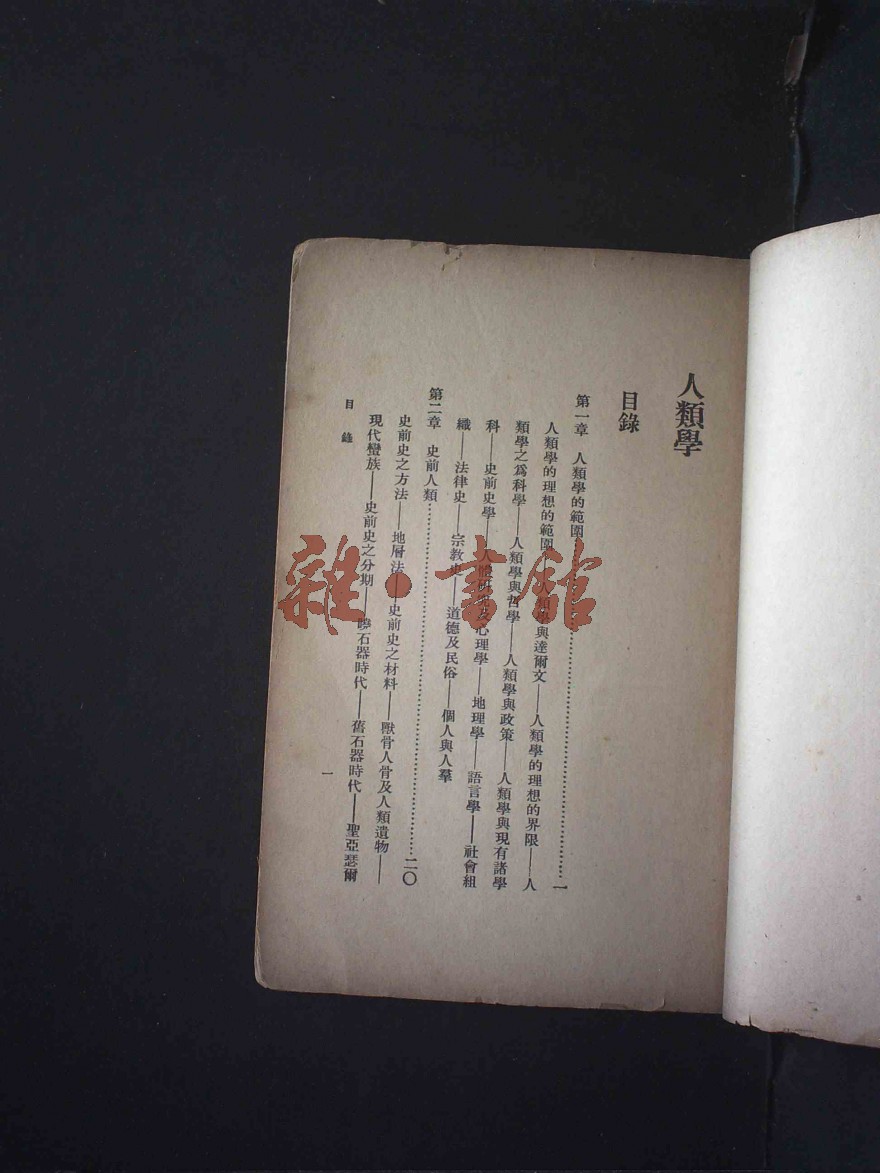 人類學
目錄
第一章　人類學的範圍……一
人類學的理想的範圍——人類學與達爾文——人類學的理想的界限——人
類學之爲科學——人類學與哲學——人類學與政策——人類學與現有諸學
科——史前史學——人體研究及心理學——地理學——語言學——社會組
織——法律史——宗教史——道德及民俗——個人與人羣
第二章　史前人類……二〇
史前史之方法——地層法——史前史之材料——獸骨人骨及人類遺物——
現代蠻族——史前史之分期——石器時代——舊石器時代——聖亞瑟爾
目錄
一
雜·書館